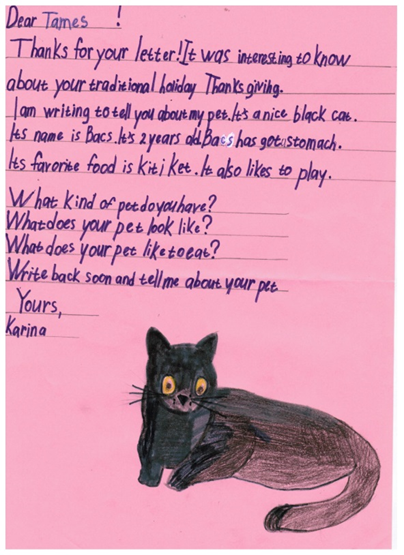 Dear Tames !
Thanks for your letter! It was interesting to know
about your traditional holiday Thanks giving.
I am writing to tell you about my pet. It's a nice black cat.
Its name is Bacs. It's 2 years old. Bacs has got stomach.
Its favorite food is kitiket. It also likes to play.
What kind of pet do you have?
What does your pet look like?
What does your pet like to eat?
Write back soon and tell me about your pet
Yours,
Karina